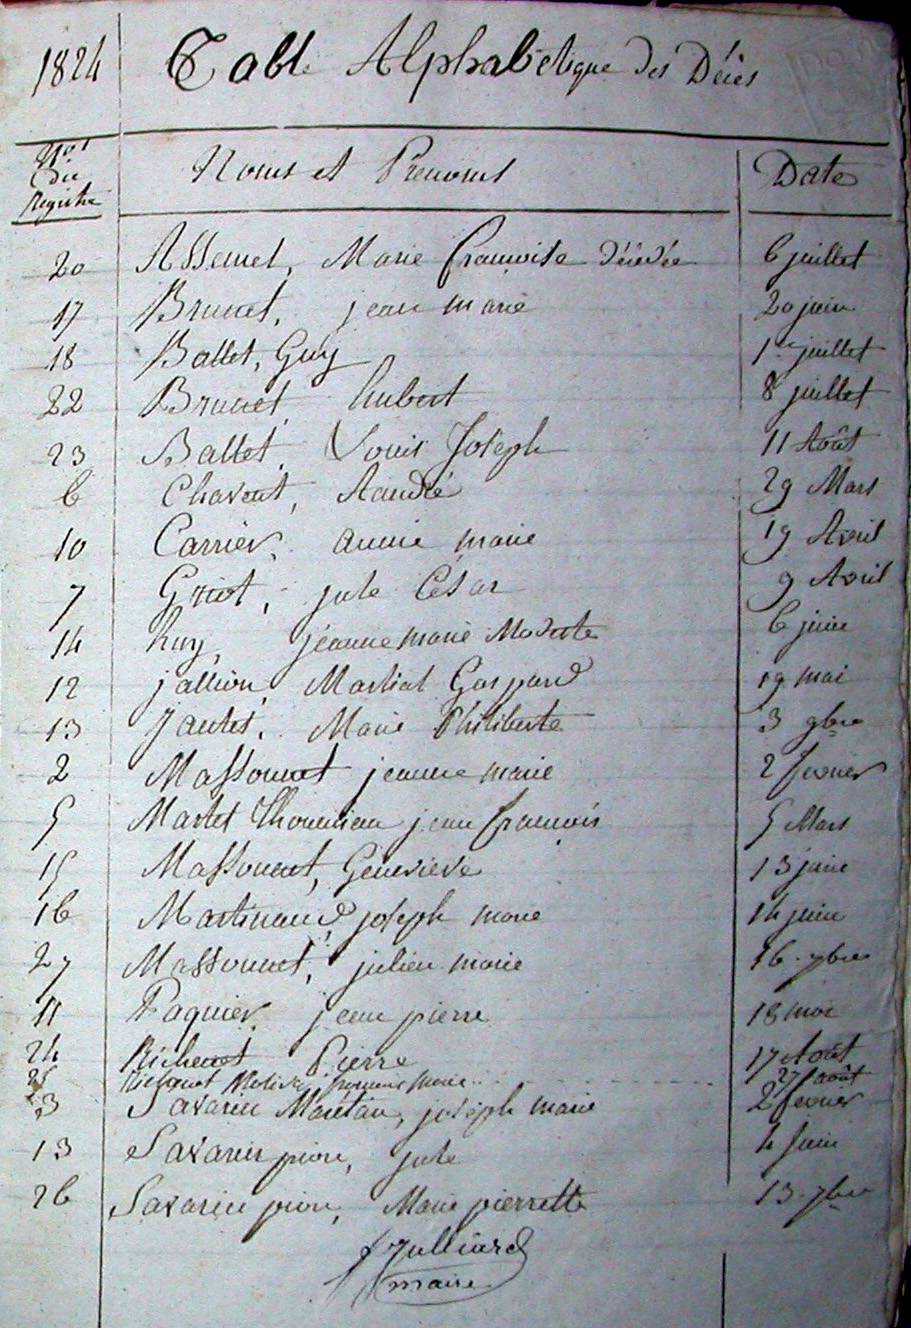 1824 Table Alphabétique des Décès
Nos
du
Registre
Noms et Prenoms Date
20 Assemet, Marie françoise décédée 6 juillet
17 Brunet, jean marie 20 juin
18 Ballet, Guy 1er juillet
22 Brunet, hubert 8 juillet
23 Ballet, Louis Joseph 11 Août
6 Chavent, 29 Mars
10 Carrier, annie marie 19 Avril
7 jule César 9 Avril
14 huy, jeanne marie Modeste 6 juin
12 jallion, Martial Gaspard 19 mai
13 Marie Philiberte 3 9bre
2 Massonnet jeanne marie 2 fevrier
5 Martet jean françois 5 Mars
15 Massonnet, Genevieve 13 juin
16 Martinand, joseph marie 14 juin
27 Massonnet, julien marie 16 7bre
11 Paquier, jean pierre 18 mai
24 Richenet Pierre 17 Août
25 marie 27 août
3 Savarin joseph marie 2 fevrier
13 Savarin pion, jule 4 juin
26 Savarin pion, Marie pierrette 13 7bre
Julliard
maire